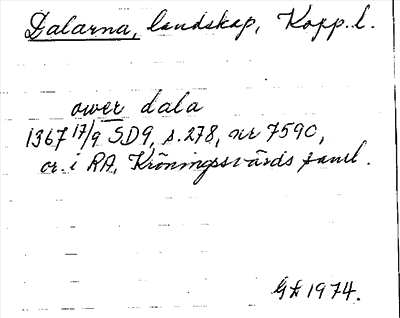 Dalarna, landskap, Kopp. l.
ower dala
1367 17/9 SD9, s. 278, nr 7590,
or. i RA, Kröningssvärds saml.
1974.